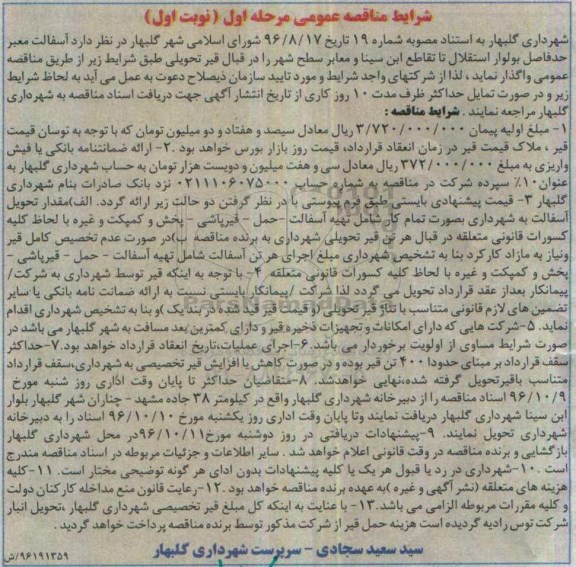 شرایط مناقصه عمومی مرحله اول (نوبت اول)
شهرداری گلبهار به استناد مصوبه شماره ۱۹ تاریخ ۹۶/۸/۱۷ شورای اسلامی شهر گلبهار در نظر دارد آسفالت معبر
حدفاصل بولوار استقلال تا تقاطع ابن سینا و معابر سطح شهر را در قبال قیر تحویلی طبق شرایط زیر از طریق مناقصه
عمومی واگذار نماید ، لذا از شرکتهای واجد شرایط و مورد تایید سازمان ذیصلاح دعوت به عمل می آید به لحاظ شرایط
زیر و در صورت تمایل حداکثر ظرف مدت ۱۰ روز کاری از تاریخ انتشار آگهی جهت دریافت اسناد مناقصه به شهرداری
گلبهار مراجعه نمایند . شرایط مناقصه :
۱- مبلغ اولیه پیمان ۳/۷۲۰/۰۰۰/۰۰۰ ریال معادل سیصد و هفتاد و دو میلیون تومان که با توجه به نوسان قیمت
قیر ، ملاک قیمت قیر در زمان انعقاد قرارداد، قیمت روز بازار بورس خواهد بود .۲- ارائه ضمانتنامه بانکی یا فیش
واریزی به مبلغ ۳۷۲/۰۰۰/۰۰۰ ریال معادل سی و هفت میلیون و دویست هزار تومان به حساب شهرداری گلبهار به
عنوان ۱۰٪ سپرده شرکت در مناقصه به شماره حساب ۰۲۱۱۱۰۶۰۷۵۰۰۰ نزد بانک صادرات بنام شهرداری
گلبهار ۳- قیمت پیشنهادی بایستی طبق فرم پیوستی با در نظر گرفتن دو حالت زیر ارائه گردد. الف)مقدار تحویل
آسفالت به شهرداری بصورت تمام کار شامل تهیه آسفالت -حمل - قیرپاشی - پخش و کمپکت و غیره با لحاظ کلیه
کسورات قانونی متعلقه در قبال هر تن قیر تحویلی شهرداری به برنده مناقصه ب)در صورت عدم تخصیص کامل قیر
ونیاز به مازاد کارکرد بنا به تشخیص شهرداری مبلغ اجرای هر تن آسفالت شامل تهیه آسفالت - حمل - قیرپاشی -
پخش و کمپکت و غیره با لحاظ کلیه کسورات قانونی متعلقه ۴- با توجه به اینکه قیر توسط شهرداری به شرکت/
پیمانکار بعداز عقد قرارداد تحویل می گردد لذا شرکت /پیمانکار بایستی نسبت به ارائه ضمانت نامه بانکی یا سایر
تضمین های لازم قانونی متناسب با تناژ قیر تحویلی (و قیمت قیر قید شده در بند یک )و بنا به تشخیص شهرداری اقدام
نماید. ۵-شرکت هایی که دارای امکانات و تجهیزات ذخیره قیر و دارای کمترین بعد مسافت به شهر گلبهار می باشد در
صورت شرایط مساوی از اولویت برخوردار می باشد.۶-اجرای عملیات،تاریخ انعقاد قرارداد خواهد بود.۷-حداکثر
سقف قرارداد بر مبنای حدودا ۴۰۰ تن قیر بوده و در صورت کاهش یا افزایش قیر تخصیصی به شهرداری،سقف قرارداد
متناسب باقیرتحویل گرفته شده،نهایی خواهدشد. ۸-متقاضیان حداکثر تا پایان وقت اداری روز شنبه مورخ
۹۶/۱۰/۹ اسناد مناقصه را از دبیرخانه شهرداری گلبهار واقع در کیلومتر ۳۸ جاده مشهد - چناران شهر گلبهار بلوار
ابن سینا شهرداری گلبهار دریافت نمایند وتا پایان وقت اداری روز یکشنبه مورخ ۹۶/۱۰/۱۰ اسناد را به دبیرخانه
شهرداری تحویل نمایند. ۹-پیشنهادات دریافتی در روز دوشنبه مورخ۹۶/۱۰/۱۱در محل شهرداری گلبهار
بازگشایی و برنده مناقصه در وقت قانونی اعلام خواهد شد . سایر اطلاعات و جزئیات مربوطه در اسناد مناقصه مندرج
است .۱۰-شهرداری در رد یا قبول هر یک یا کلیه پیشنهادات بدون ادای هر گونه توضیحی مختار است. ۱۱-کلیه
هزینه های متعلقه (نشر آگهی و غیره )به عهده برنده مناقصه خواهد بود .۱۲-رعایت قانون منع مداخله کارکنان دولت
و کلیه مقررات مربوطه الزامی می باشد.۱۳- با عنایت به اینکه کل مبلغ قیر تخصیصی شهرداری گلبهار ،تحویل انبار
شرکت توس رادیه گردیده است هزینه حمل قیر از شرکت مذکور توسط برنده مناقصه پرداخت خواهد گردید .
سید سعید سجادی - سرپرست شهرداری گلبهار
۹۶۱۹۱۳۵۹/ش